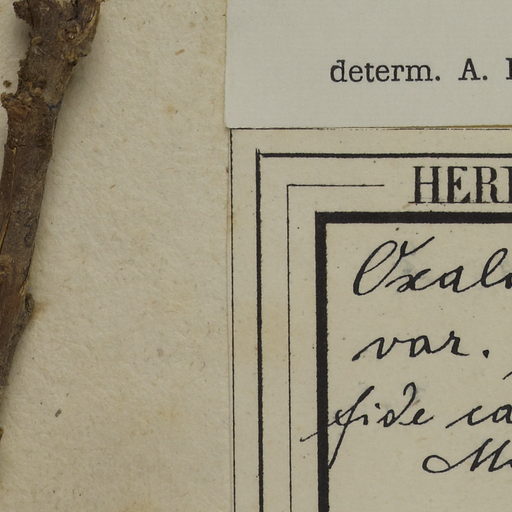 determ. A.
HER
Oxal
var.
fide ca
M